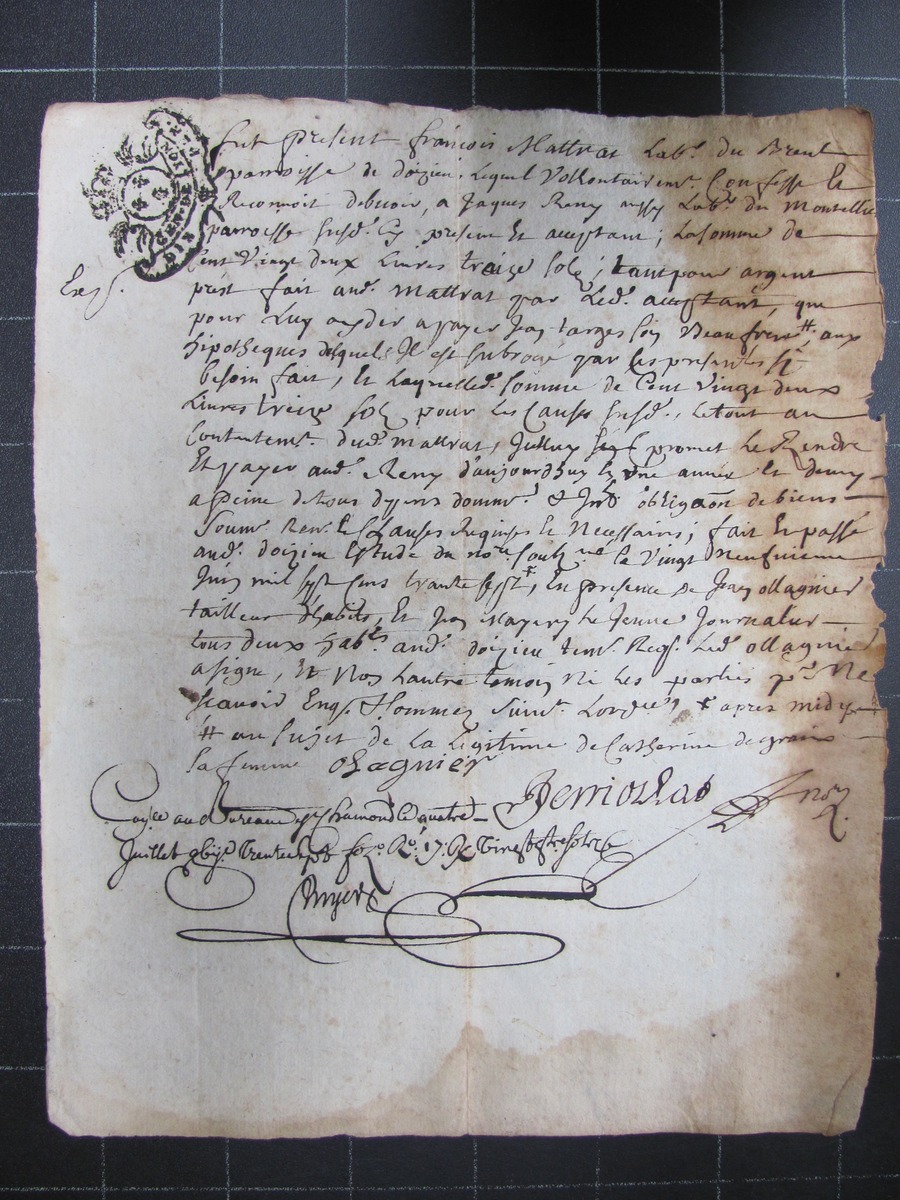 fut présent françois Mattrat Lab.r du Breul
parroisse de doizieu, Lequel Vollontairem.t Confesse et
Reconnoit debvoir, a Jaques Reny aussy Lab.r du Montellie
parroisse susd.e Cy présent Et acceptant; La somme de
Cent Vingt deux Livres treize solz; tant pour argent
Exp.
prest fait aud.t Mattrat par Led.t acceptant, que
pour Luy ayder a payer Jean targes son Beaufrere #, aux
hipotheques desquels Il est subrogé par les présentes sy
besoin fait, Et Laquelle d.e somme de Cent Vingt deux
Livres treize solz pour les Causes susd.es, Le tout au
Contentem.t dud.t Mattrat, promet de Rendre
Et payer aud.t Reny d'aujourdhuy En une année Et demy
a peine de tous dépens domm.s & Int.s obligaon de biens
Soum.s Ren. & Clauses Requises Et Necessaires; fait Et passé
aud.t doizieu Estude du no.re soubz.né le Vingt Neufvieme
Juin mil sept cens trante sept *, En présence de Jean ollagnier
tailleur d'habits, Et Jean Mayery Le Jeune Journalier
tous deux hab.ts aud.t doizieu tem. Req.s Led.t ollagnier
a signé, Et Non L'autre temoin Ni Les parties p.r Ne
scavoir Enq.s Et Sommez Suiv.t L'ord.e * apres midy
# au sujet de La Légitime de Catherine de graix
sa femme ollagnier
Perriolhat no.re
au Bureau de st chamond le quatre
Juillet